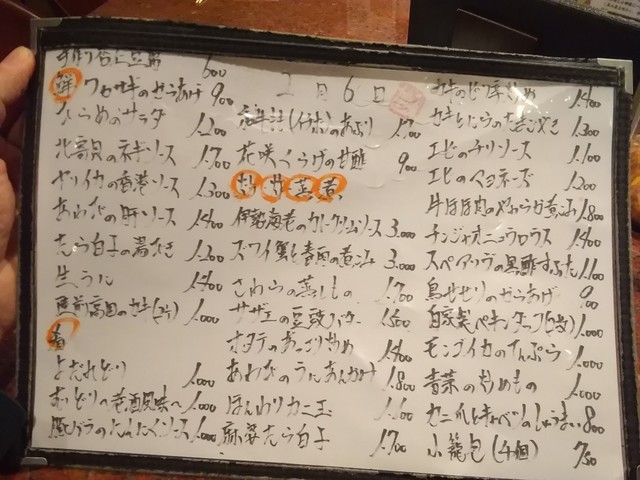 600
鮮 ワカサギのからあげ 900
ひらめのサラダ 1.200
北寄貝のネギソース 1.700
ヤリイカの香港ソース 1.300
あわびの肝ソース 1.400
たら白子の 1.200
生うに 1.400
のカキ(2ケ) 1.000
よだれどり 1.000
老酒風味へ 1.000
豚バラのにんにくソース 1.000
2月6日
のあぶり
花咲くらげの甘酢 900
蒸 煮
伊勢海老のクリームソース 3.000
ズワイ蟹と春雨の煮込み 3.000
さわらの蒸しもの 1.700
サザエの豆豉バター 1.500
ホタテのあっさり炒め 1.400
あわびのうにあんかけ 1.800
ほんわりカニ玉
麻婆たら白子 1.700
1.400
カキとにらの 1.300
エビのチリソース 1.100
エビのマヨネーズ 1.200
牛ほほ肉のやわらか煮込み 1.800
チンジャオニュウロウス 1.400
スペアリブの黒酢すぶた 1.100
鳥せせりのからあげ 900
自家製ペキンダック 1.000
モンゴイカのてんぷら 1.000
青菜の炒めもの 1.000
カニ爪とキャベツのしゅうまい 800
小籠包(4個) 750